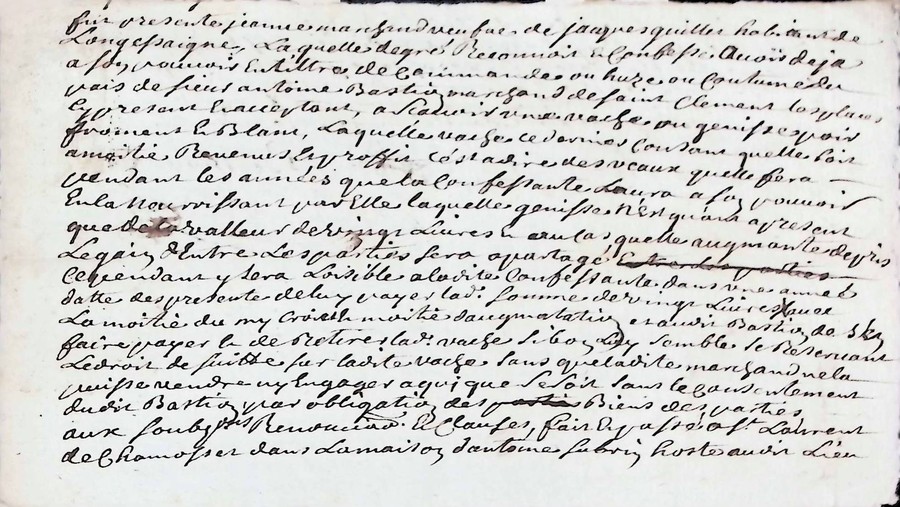 fut presente jeanne marchand veufve de jacques quiller habitant de
Longessaigne, Laquelle degré Reconnoit & Confesse avoir deja
a son pouvoir En tiltre de Commande ou haze ou Coutume du
païs de sieur antoine Bastion marchand de saint Clement les places
Cy present & acceptant, a scavoir une vache ou genisse pois
froment & Blanc, Laquelle vache ce dernier Constant quelle soit
amoitié Revenus & proffit C'estadire des veaux quelle fera
pendant les années que la Confessante Laura a son pouvoir
En la nourrissant par Elle laquelle genisse N'est quant a present
que de la valleur de vingt Livres au Cas quelle augmante de prix
Le gain d'Entre Les parties sera apartagé Entre les parties
Cependant y sera Loisible a ladite Confessante dans une année
datte des presente de luy payer lad. somme de vingt Livres avec
La moitié du my Croitt moitié daugmatation et audit Bastion de
faire payer & de Retirer lad. vache si bon Luy semble se Reservant
Le droit de suitte sur ladite vache sans que ladite marchand ne la
puisse vendre ny Engager a qui que se soit sans le Consentement
dudit Bastion par obligation des parties Biens des parties
aux soubz Renonciaõ. & Clauses, fait & passé a St. Laurent
de Chamosset dans La maison d'antoine subrin hoste audit Lieu